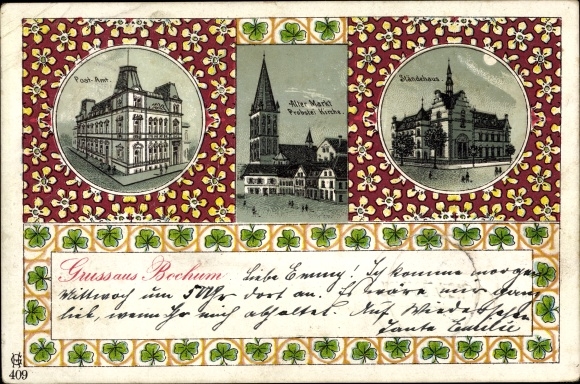 Post-Amt.
Alter Markt
Probstei Kirche.
Ständehaus.
Gruss aus Bochum. Liebe Emmy! Ich komme morgen
Mittwoch um 5 Uhr dort an. Es wäre mir ganz
lieb, wenn Ihr mich abholtet. Auf Wiedersehen
Tante
409